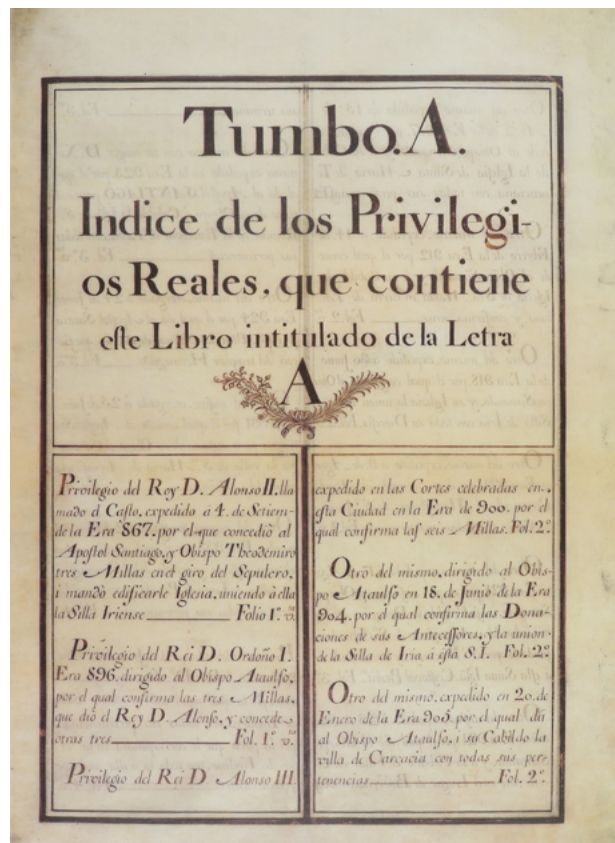 Tumbo. A.
Indice de los Privilegi-
os Reales, que contiene
este Libro intitulado de la Letra
A
Privilegio del Rey D. Alonso II. lla
mado el Casto, expedido á 4. de Setiem-
de la Era 867. por el que concedió al
Apostol Santiago, y Obispo Theodemiro
tres Millas en el giro del Sepulcro,
i mandó edificarle Iglesia, uniendo à ella
la Silla Iriense Folio 1º. vº.
Privilegio del Rei D. Ordoño I.
Era 896. dirigido al Obispo Ataulfo,
por el qual confirma las tres Millas,
que dió el Rey D. Alonso, y concede
otras tres Fol. 1º. vº.
Privilegio del Rei D. Alonso III.
expedido en las Cortes celebradas en
esta Ciudad en la Era de 900. por el
qual confirma las seis Millas. Fol. 2º.
Otro del mismo, dirigido al Obis-
po Ataulfo en 18. de Junio de la Era
904. por el qual confirma las Dona-
ciones de sus Antecessores, y la union
de la Silla de Iria á esta S. I. Fol. 2º.
Otro del mismo, expedido en 20. de
Enero de la Era por el qual dá
al Obispo Ataulfo, i su Cabildo la
villa de Carcacia con todas sus per-
tenencias Fol. 2º.